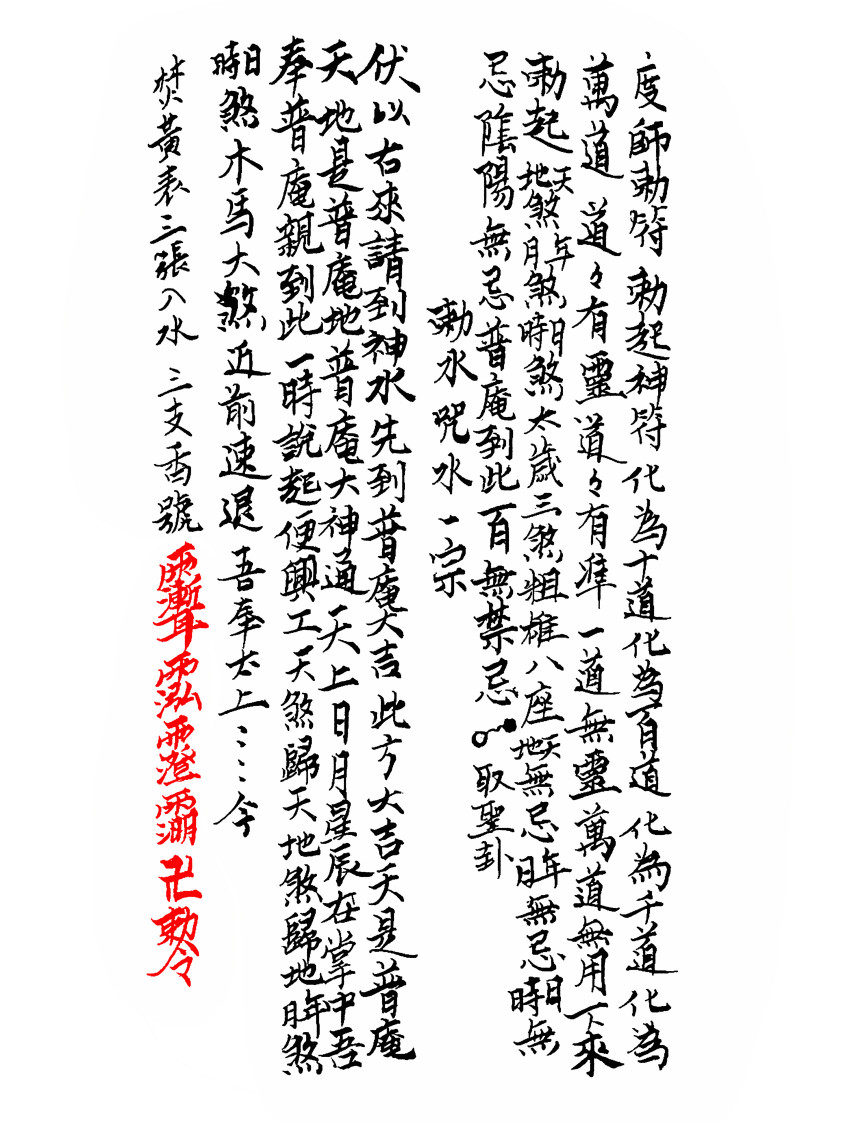 度師勅符勅起神符化為十道化為百道化為千道化為
萬道道々有靈道々有準一道無靈萬道無用下來
勅起天地煞年月煞日時煞太歲三煞粗雄八座天地無忌年月無忌日時無
忌陰陽無忌普庵到此百無禁忌取聖卦
勅水咒水一宗
伏以右來請到神水先到普庵大吉此方大吉天是普庵
天地是普庵地普庵大神通天上日月星辰在掌中吾
奉普庵親到此一時說起便興工天煞歸天地煞歸地年月煞
日時煞木馬大煞近前速退吾奉太上〻〻令
焚黃表三張入水三支香號
卍勅令